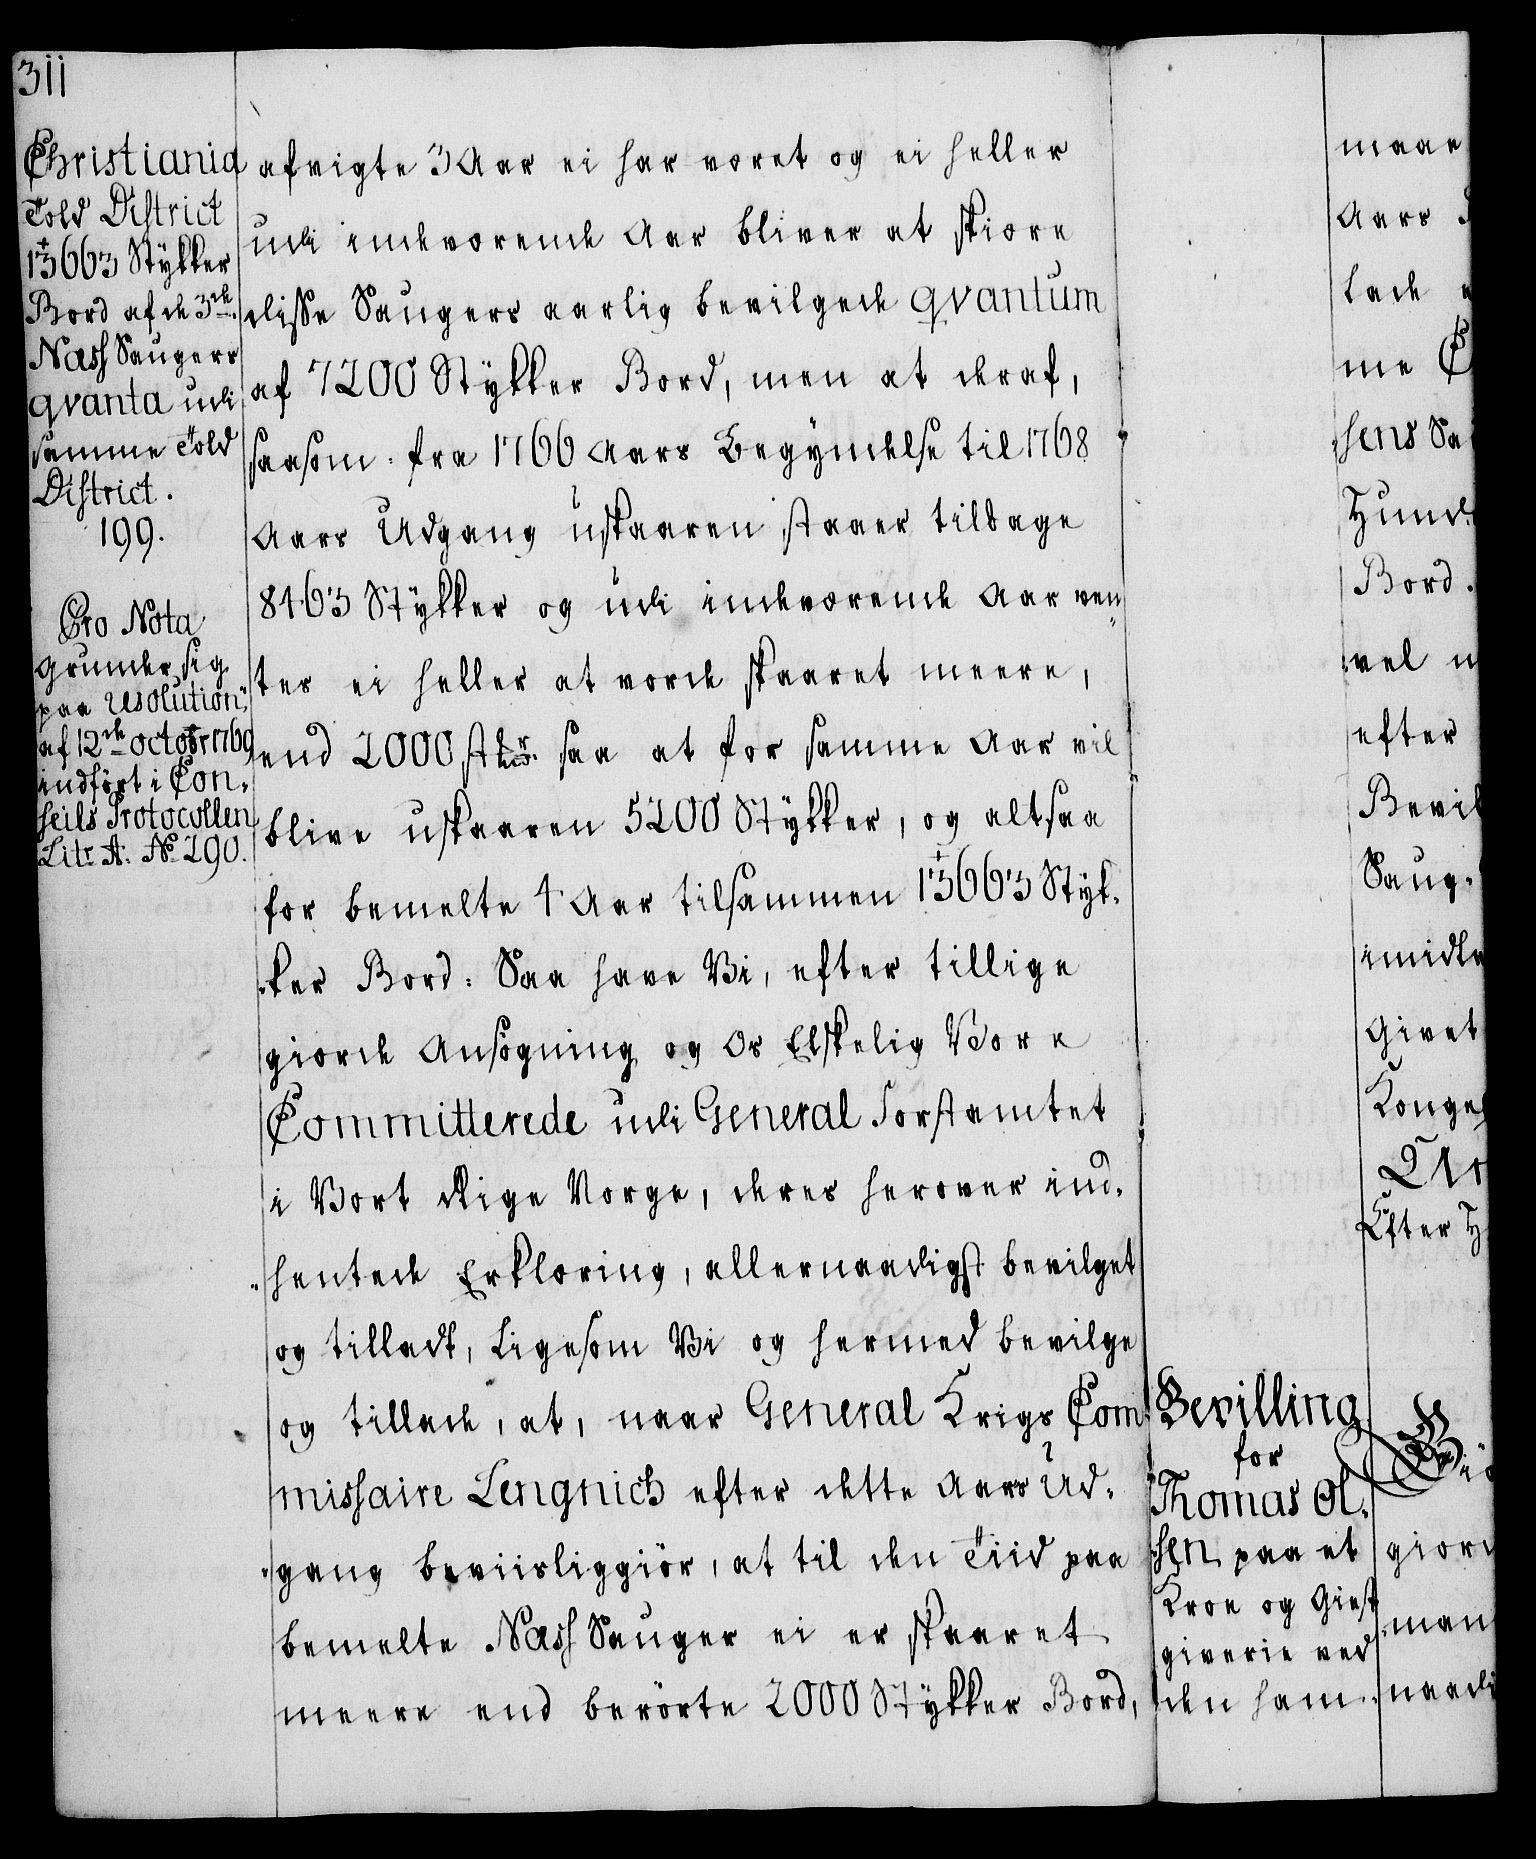 311
Christiania
Told District
13663 Stÿkker
Bord af de 3de
Næss Saugers
qvanta udi
samme Told
District.
199.
Pro Nota
grunder sig
paa resolution
af 12te octobr 1769
indført i Con-
seils Protocollen
Litr. A. No 290.
afvigte 3 Aar ei har været og ei heller
udi indeværende Aar bliver at skiære
disse Saugers aarlig bevilgede qvantum
af 7200 Stÿkker Bord, men at deraf,
saasom fra 1766 Aars Begÿndelse til 1768
Aars Udgang uskaaren staaer tilbage
8463 Stÿkker og udi indeværende Aar ven-
ter ei heller at vorde skaaret meere,
end 2000 stkr. saa at for samme Aar vil
blive uskaaren 5200 Stÿkker, og altsaa
for bemelte 4 Aar tilsammen 13663 Stÿk-
ker Bord: Saa have Vi, efter tillige
giorde Ansøgning og Os Elskelig Vore
Committerede udi General Forstamtet
i Vort Rige Norge, deres herover ind-
hentede Erklæring, allernaadigst bevilget
og tilladt, ligesom Vi og hermed bevilge
og tillade, at, naar General Krigs Com
missaire Lengnich efter dette Aars Ud-
gang beviisliggiör, at til den Tiid paa
bemelte Næss Sauger ei er skaaret
meere end berörte 2000 Stÿkker Bord,
Bevilling
for
Thomas Ol-
sen paa et
Kroe og Giest
giverie ved
den ham-
maae
Aars
lade
me
sens Sa
Hund
Bord.
vel
efter
Bevil
Saug-
imidle
Givet
Konge
Efter H
giord
man
naadi